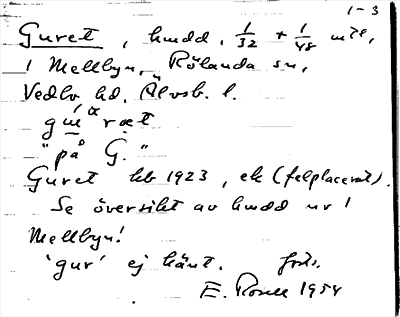 1-3
Guret, hmdd, 1/32 + 1/48 mtl,
i Mellbyn, Rölanda sn,
Vedbo hd, Älvsb. l.
"på G."
Guret kb 1923, ek (felplacerat).
Se översikt av hmdd nr 1
Mellbyn!
'gur' ej känt. forts.
E. Rosell 1954